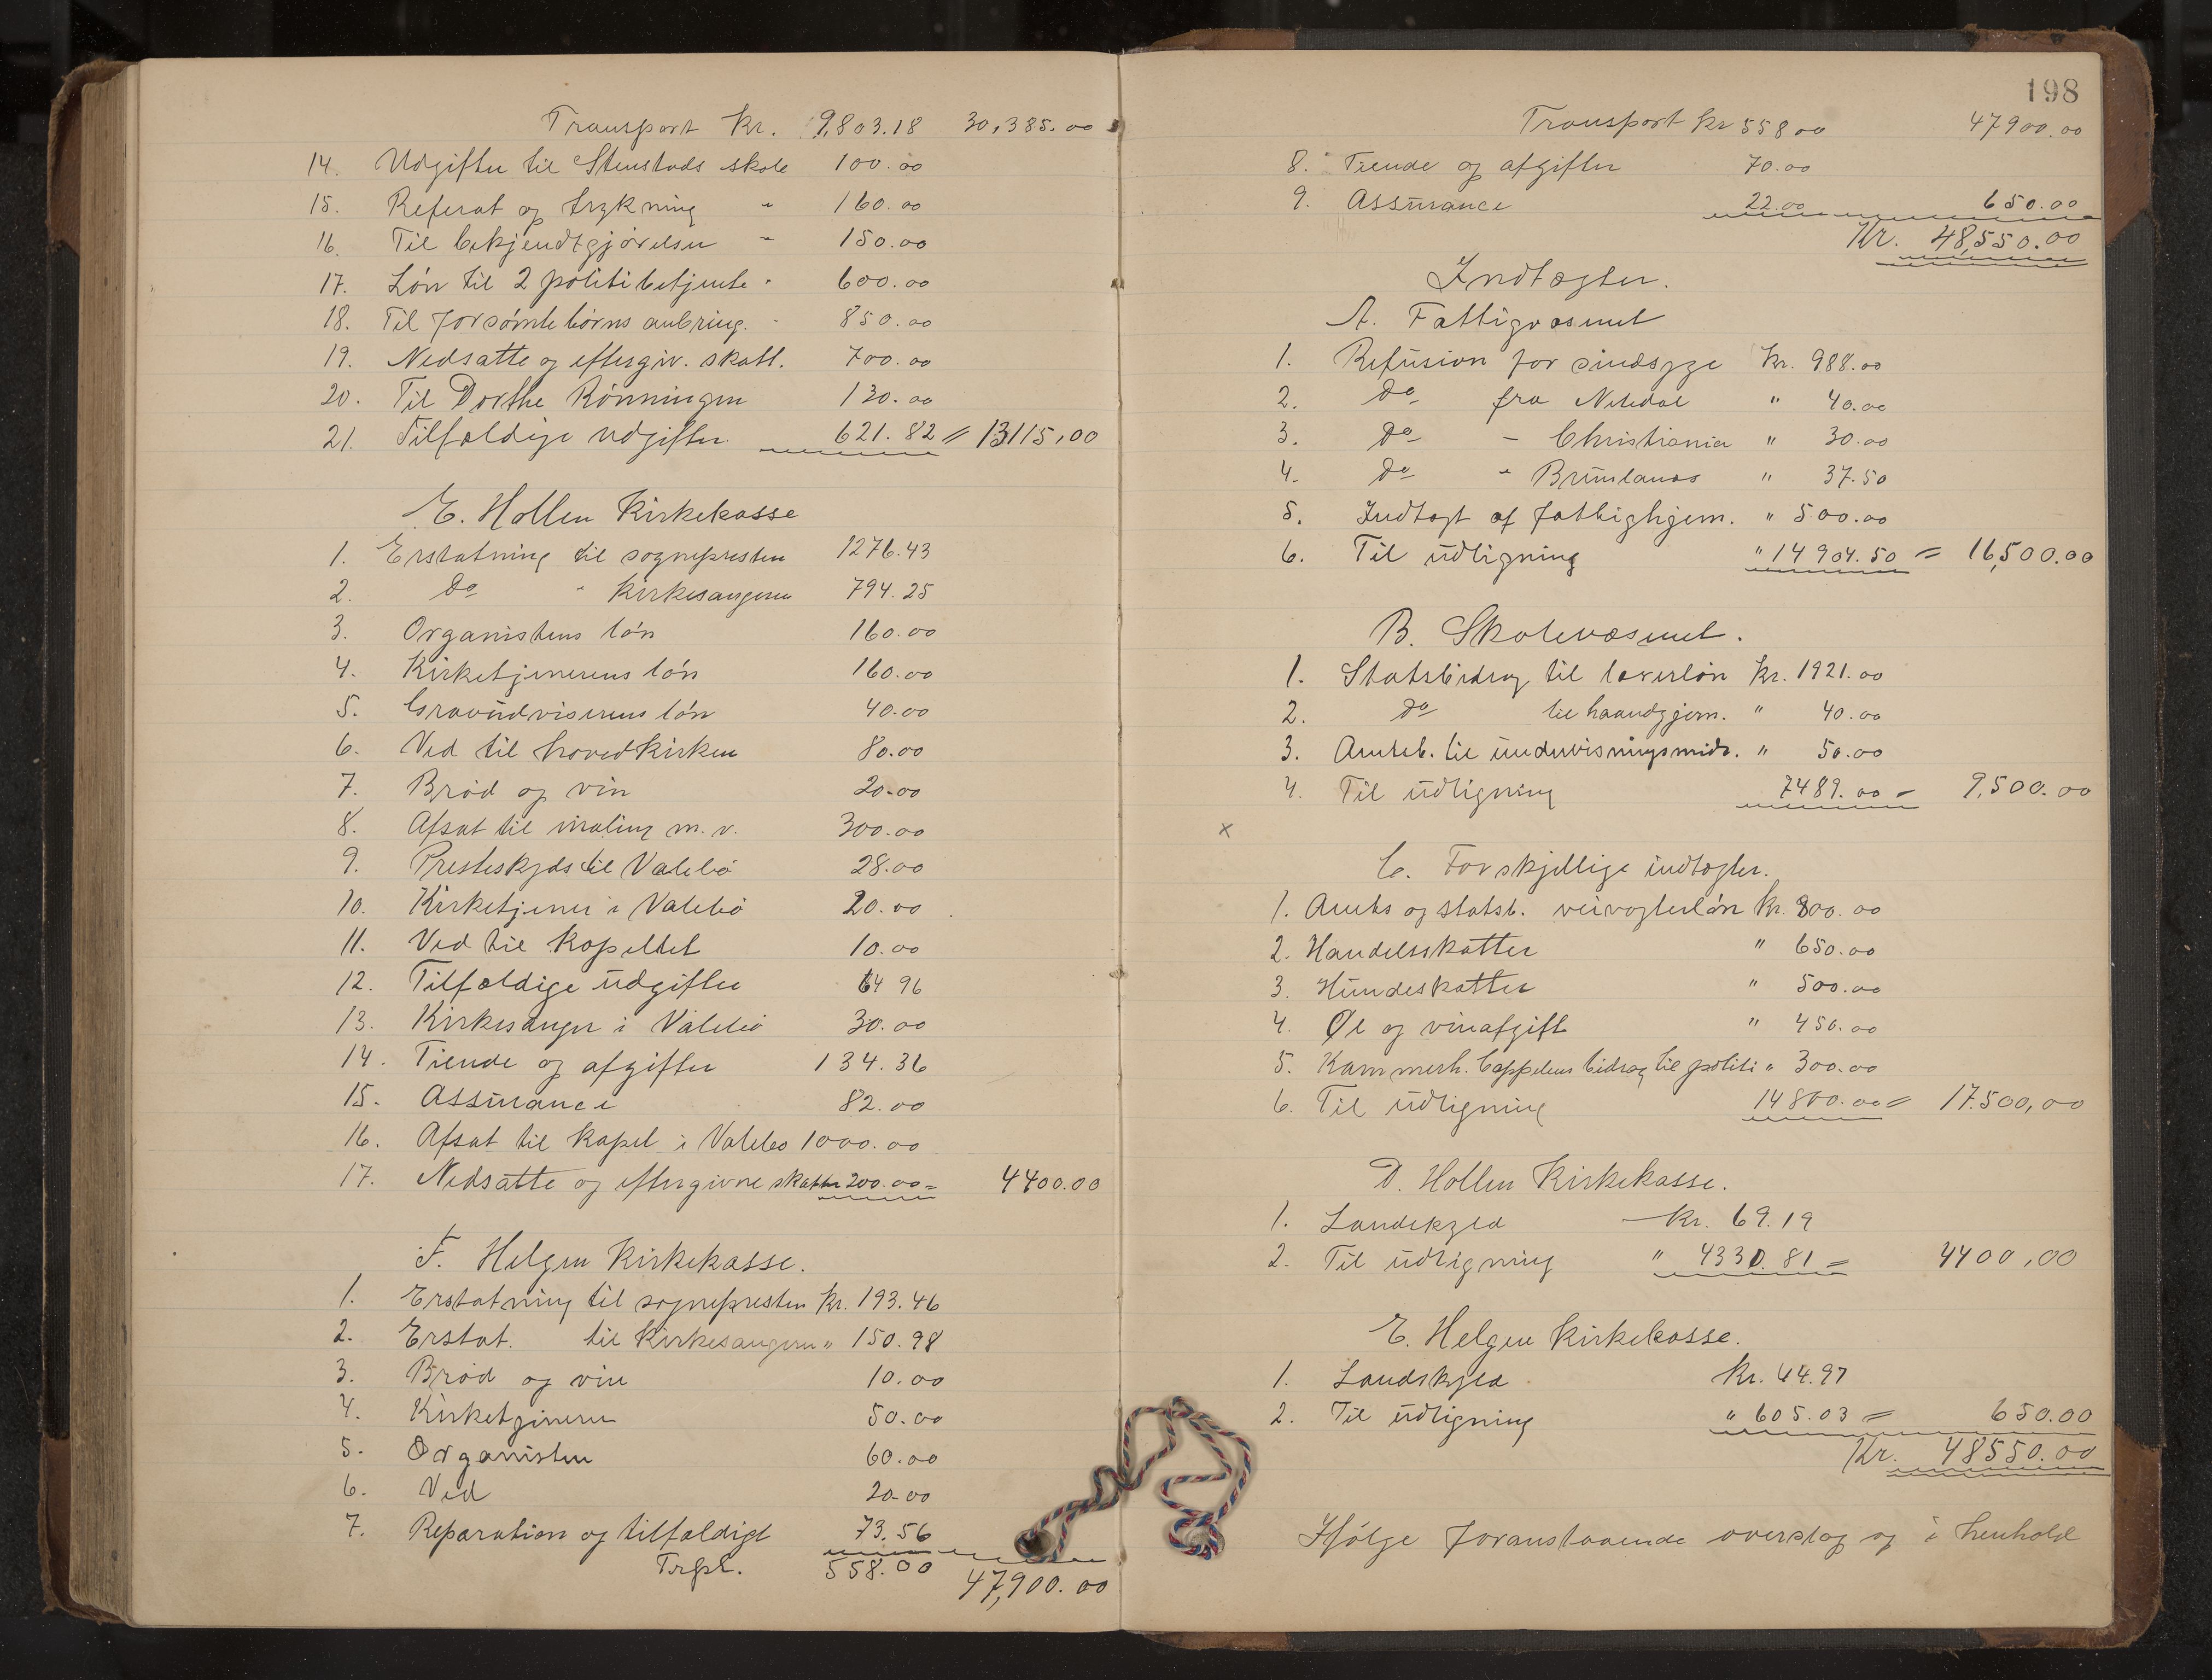 Transport Kr. 9,803.18 30,385.00
14. Udgifter til Stenstads skole 100.00
15. Referat og trykning " 160.00
16. Til bekjendtgjørelser " 150.00
17. Løn til 2 politibetjente " 600.00
18. Til forsømte børns anbring. " 850.00
19. Nedsatte og eftergiv. skatt. 700.00
20. Til Dorthe Rønningen 130.00
21. Tilfældige udgifter 621.82 = 13115,00
E. Hollen Kirkekasse
1. Erstatning til sognepresten 1276.43
2. Do " kirkesangeren 794.25
3. Organistens løn 160.00
4. Kirketjenerens løn 160.00
5. Gravudviserens løn 40.00
6. Ved til hovedkirken 80.00
7. Brød og vin 20.00
8. Afsat til maling m. v. 300.00
9. Presteskyds til Valebø 28.00
10. Kirketjener i Valebø 20.00
11. Ved til kapellet 10.00
12. Tilfældige udgifter 64 96
13. Kirkesanger i Valebø 30.00
14. Tiende og afgifter 134.36
15. Assurance 82.00
16. Afsat til kapel i Valebø 1000.00
17. Nedsatte og eftergivne skatter 200.00 = 4400.00
F. Helgen Kirkekasse.
1. Erstatning til sognepresten Kr. 193.46
2. Erstat. til Kirkesangeren " 150.98
3. Brød og vin 10.00
4. Kirketjeneren 50.00
5. Organisten 60.00
6. Ved 20.00
7. Reparation og tilfældigt 73.56
Trpt. 558.00 47,900.00
198
Transport Kr 558 00 47900.00
8. Tiende og afgifter 70.00
9. Assurance 22.00 650.00
Kr. 48,550.00
Indtægter.
A. Fattigvæsenet
1. Refusion for sindsyge Kr. 988.00
2. Do fra Nitedal " 40.00
3. Do - Christiania " 30.00
4. Do " Brunlanæs " 37.50
5. Indtægt af fattighjem. " 500.00
6. Til udligning " 14904.50 = 16,500.00
B. Skolevæsenet.
1. Statsbidrag til lærerløn Kr. 1921.00
2. Do til haandgjern. " 40.00
3. Amtsb. til undervisningsmidr. " 50.00
4. Til udligning 7489.00 = 9,500.00
x
C. Forskjellige indtægter.
1. Amts og statsb. veivogterløn Kr. 800.00
2. Handelsskatter " 650.00
3. Hundeskatter " 500.00
4. Øl og vinafgift " 450.00
5. Kammerh. Cappelens bidrag til politi " 300.00
6. Til udligning 14800.00 = 17.500,00
D. Hollen Kirkekasse.
1. Landskyld Kr. 69.19
2. Til udligning " 4330.81 = 4400,00
E. Helgen Kirkekasse.
1. Landskyld Kr. 44.97
2. Til udligning " 605.03 = 650.00
Kr. 48550.00
Ifølge foranstaaende overslag og i henhold